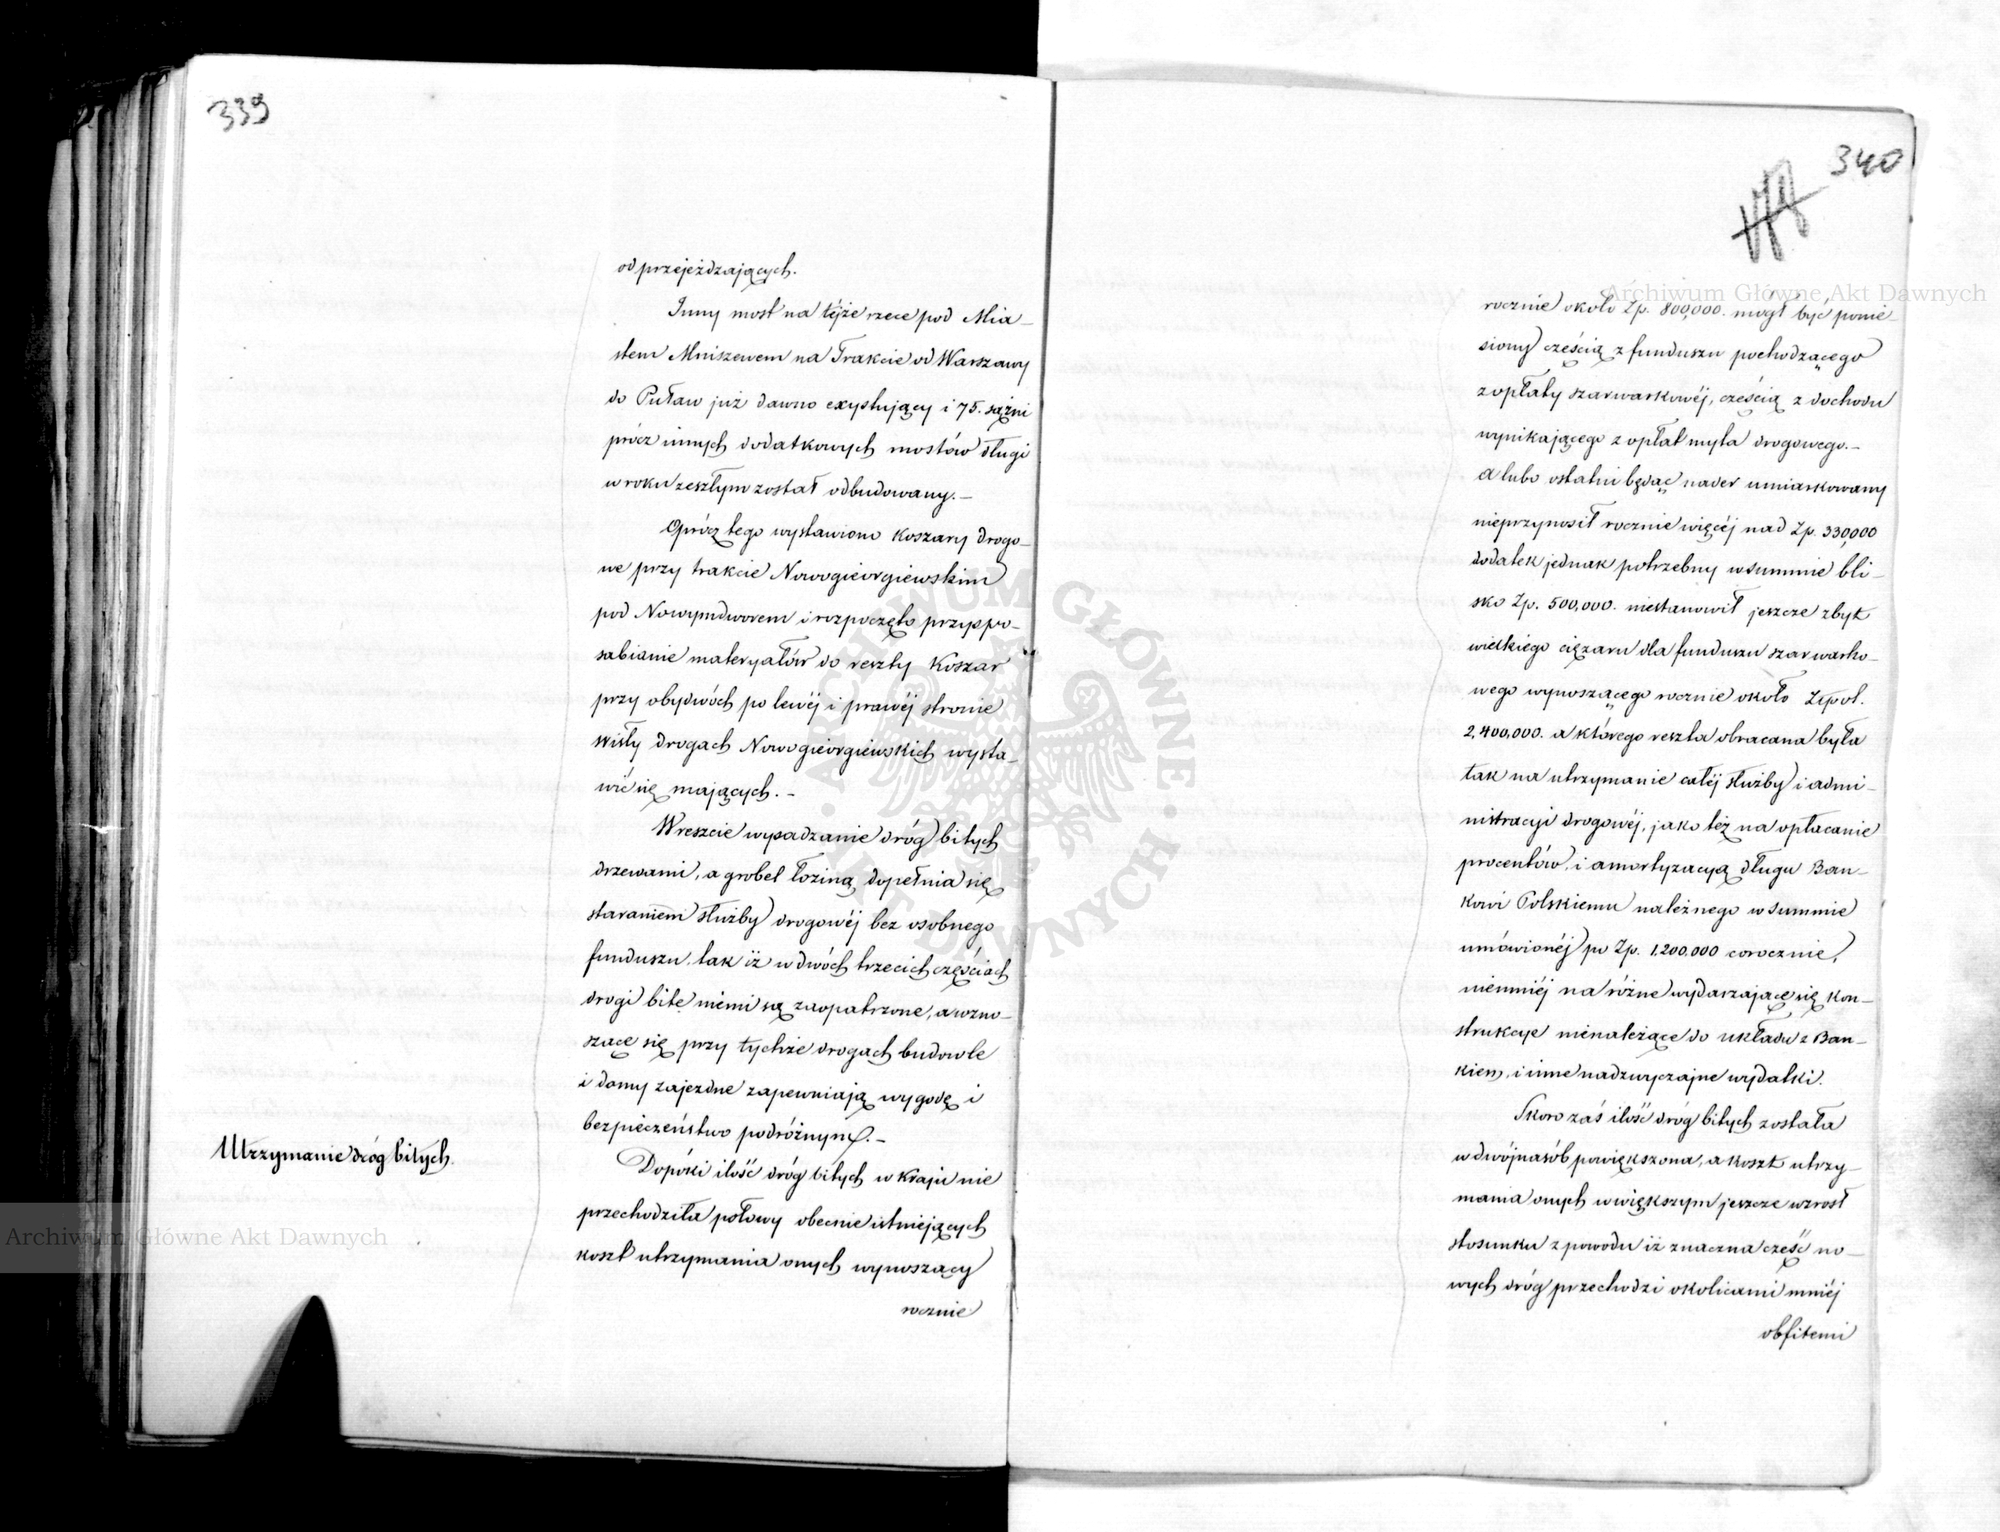 339
od przejeżdzających.
Inny most na téjże rzece pod Mia-
stem Mniszewem na Trakcie od Warszawy
do Puław już dawno exystujący i 75. sążni
prócz innych dodatkowych mostów długi
w roku zeszłym został odbudowany.-
Oprócz tego wystawiono koszary drogo-
we przy trakcie Nowogieorgiewskim
pod Nowymdworem i rozpoczęto przyspo-
sabianie materyałów do reszty koszar
przy obydwóch po lewéj i prawéj stronie
Wisły drogach Nowogieorgiewskich wysta-
wić się mających.-
Wreszcie wysadzanie dróg bitych
drzewami, a grobel łoziną dopełnia się
staraniem służby drogowéj bez osobnego
funduszu, tak iż w dwóch trzecich częściach
drogi bite niemi są zaopatrzone, a wzno-
szące się przy tychże drogach budowle
i domy zajezdne zapewniają wygodę i
bezpieczeństwo podróżnym.-
Utrzymanie dróg bitych.
Dopóki ilość dróg bitych w Kraju nie
przechodziła połowy obecnie istniejących
koszt utrzymania onych wynoszący
rocznie
340
rocznie około Zp. 800,000. mógł być ponie-
siony częścią z funduszu pochodzącego
z opłaty szarwarkowéj, częścią z dochodu
wynikającego z opłat myta drogowego.-
A lubo ostatni będąc nader umiarkowany
nieprzynosił rocznie więcéj nad Zp. 330,000
dodatek jednak potrzebny w summie bli-
sko Zp. 500,000. niestanowił jeszcze zbyt
wielkiego ciężaru dla funduszu szarwarko-
wego wynoszącego rocznie około Złpol.
2,400,000. a którego reszta obracana była
tak na utrzymanie całéj służby i admi-
nistracyi drogowéj, jako też na opłacanie
procentów i amortyzacyą długu Ban-
kowi Polskiemu należnego w summie
umówionéj po Zp. 1,200,000 corocznie,
niemniéj na różne wydarzające się kon-
strukcye nienależące do układu z Ban-
kiem, i inne nadzwyczajne wydatki.
Skoro zaś ilość dróg bitych została
w dwójnasób powiększona, a koszt utrzy-
mania onych w większym jeszcze wzrósł
stosunku z powodu iż znaczna część no-
wych dróg przechodzi okolicami mniéj
obfitemi
Archiwum Główne Akt Dawnych
Archiwum Główne Akt Dawnych
ARCHIWUM GŁÓWNE AKT DAWNYCH